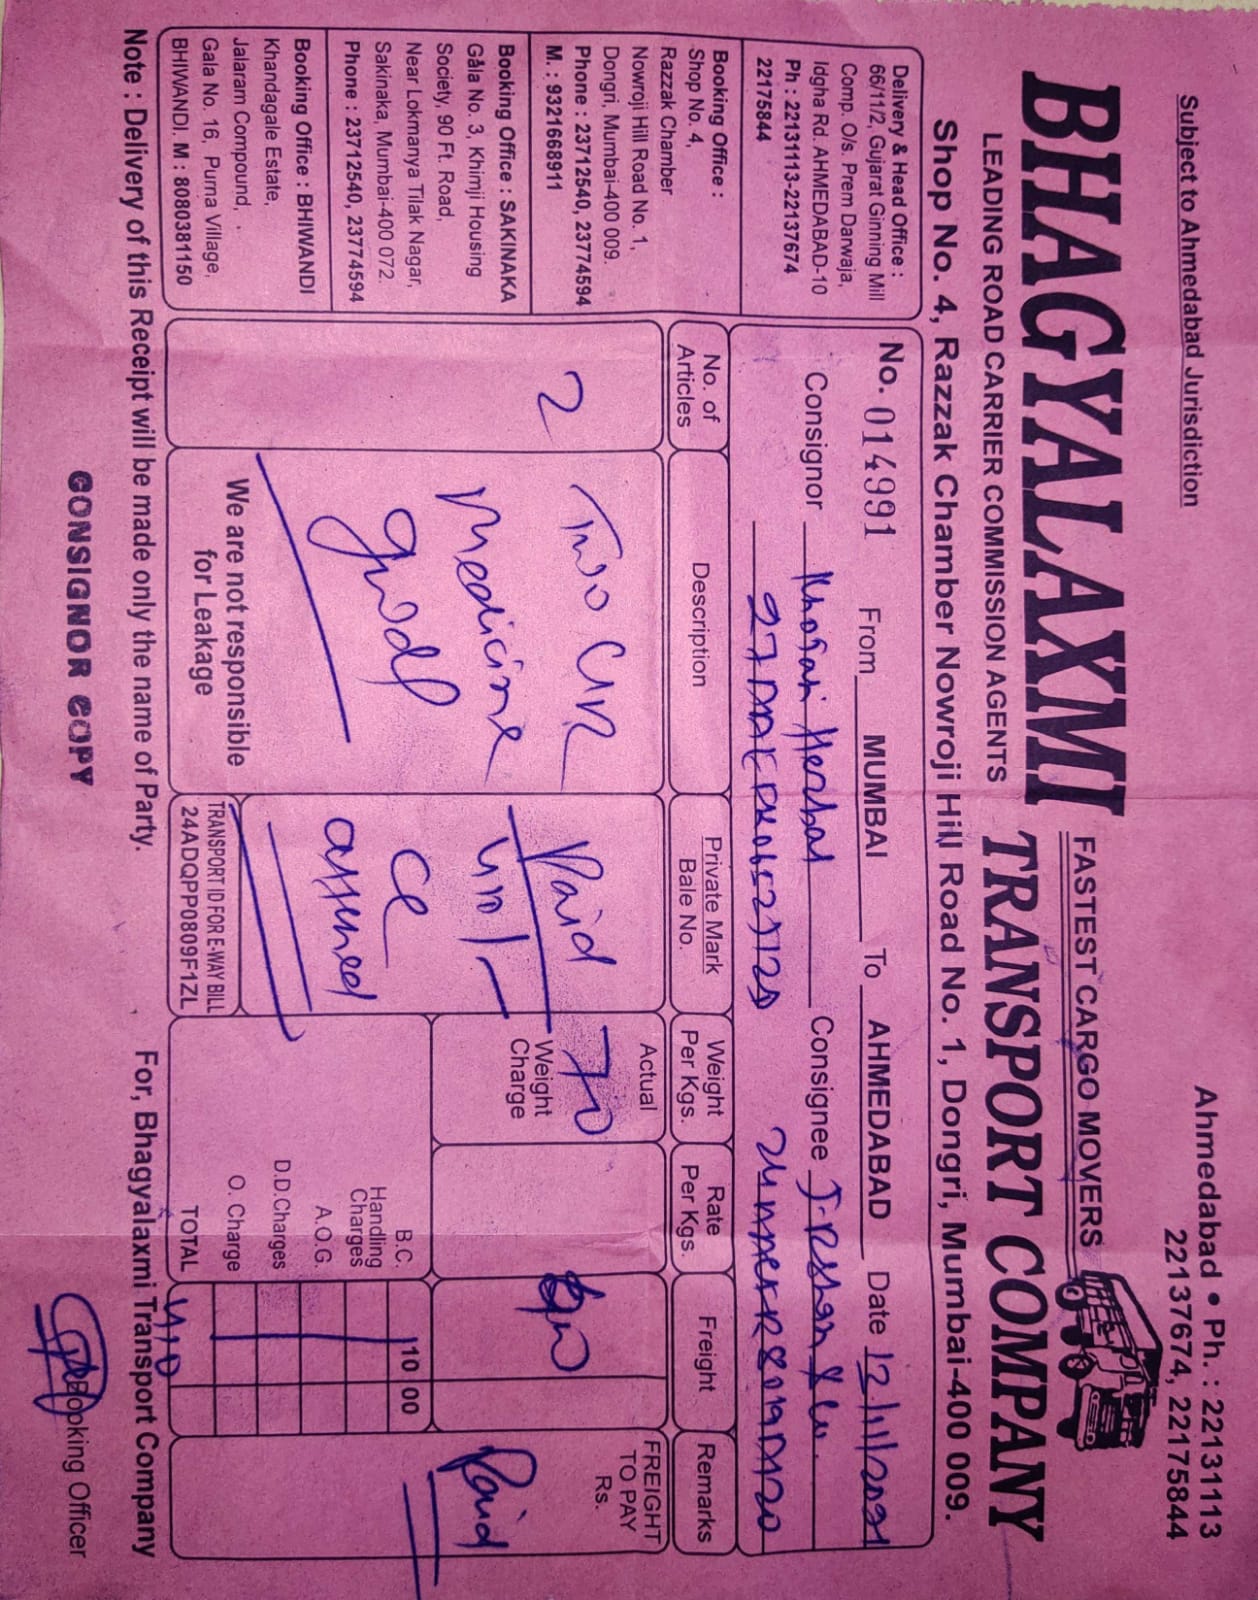 Subject to Ahmedabad Jurisdiction
Ahmedabad • Ph. : 22131113
22137674, 22175844
FASTEST CARGO MOVERS
BHAGYALAXMI TRANSPORT COMPANY
LEADING ROAD CARRIER COMMISSION AGENTS
Shop No. 4, Razzak Chamber Nowroji Hill Road No. 1, Dongri, Mumbai-400 009.
Delivery & Head Office :
66/11/2, Gujarat Ginning Mill
Comp. O/s. Prem Darwaja,
Idgha Rd, AHMEDABAD-10
Ph : 22131113-22137674
22175844
Booking Office :
Shop No. 4,
Razzak Chamber
Nowroji Hill Road No. 1,
Dongri, Mumbai-400 009.
Phone : 23712540, 23774594
M. : 9321668911
Booking Office : SAKINAKA
Gala No. 3, Khimji Housing
Society, 90 Ft. Road,
Near Lokmanya Tilak Nagar,
Sakinaka, Mumbai-400 072.
Phone : 23712540, 23774594
Booking Office : BHIWANDI
Khandagale Estate,
Jalaram Compound,
Gala No. 16, Purna Village,
BHIWANDI. M : 8080381150
No. 014991 From MUMBAI To AHMEDABAD Date
Consignor Consignee
No. of Articles
Description
Private Mark Bale No.
Weight Per Kgs.
Rate Per Kgs.
Freight
Remarks
2
Two
Medicine
Paid
Actual
70
Weight Charge
FREIGHT TO PAY Rs.
Paid
B.C. 10 00
Handling Charges
A.O.G.
D.D.Charges
O. Charge
TOTAL
We are not responsible
for Leakage
TRANSPORT ID FOR E-WAY BILL
24ADQPP0809F1ZL
Note : Delivery of this Receipt will be made only the name of Party.
For, Bhagyalaxmi Transport Company
CONSIGNOR COPY
Booking Officer